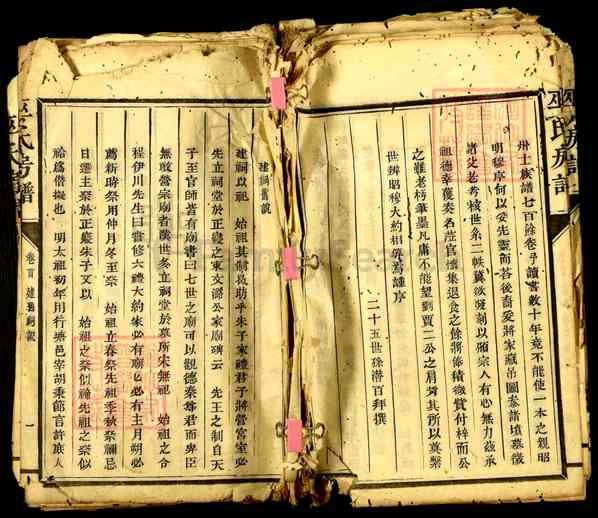 州士族譜七百餘卷予讀書數十年竟不能使一本之親昭
明穆序何以妥先靈而答後裔爰將家藏吊圖參諸墳墓徵
諸父老考核世系二帙冀欲刻以貽宗人有心無力茲承
祖德幸獲奏名涖官懷集退食之餘將俸積微貲付梓而公
之雖老朽筆墨凡庸不能望到賈二公之肩背其所以奠繫
世辨昭穆大約相彷焉謹序
二十五世孫濳百拜撰
巫氏房譜
建祠舊說
建祠以祖 始祖其制長助乎朱子家禮君子將營宮室必
先立祠堂於正寢之東文潞公家廟碑云 先王之制自天
子至官師皆有廟書曰七世之廟可以觀德秦尊君而卑臣
無敢營宗廟者漢世多立祠堂於墓所宋無祖 始祖之合
程伊川先生曰嘗修六禮大約家必有廟廟必有主月朔必
薦新時祭用仲月冬至祭 始祖立春祭先祖季秋祭禰忌
日遷主祭於正寢朱子又以 始祖之祭似禘先祖之祭似
祫為僭擬也 明太祖初年用行塘邑宰胡秉節言許庶人
巫氏房譜
卷首 建舊祠說
一